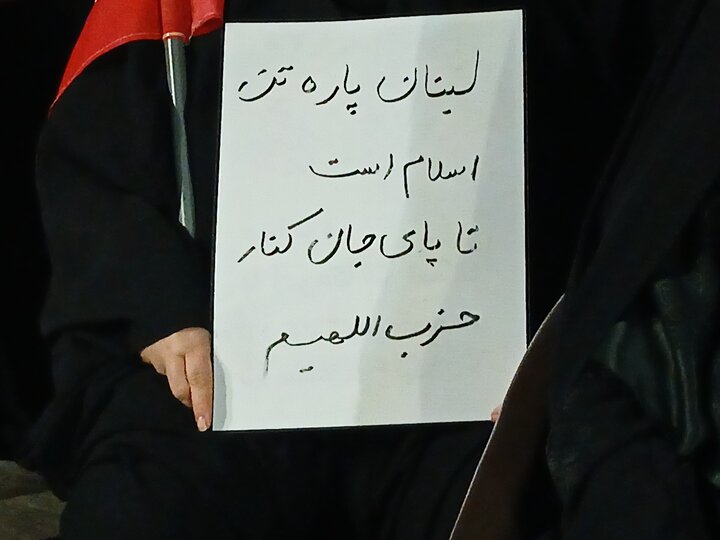 لبنان پاره تن
اسلام است
تا پای جان کنار
حزب اللهیم